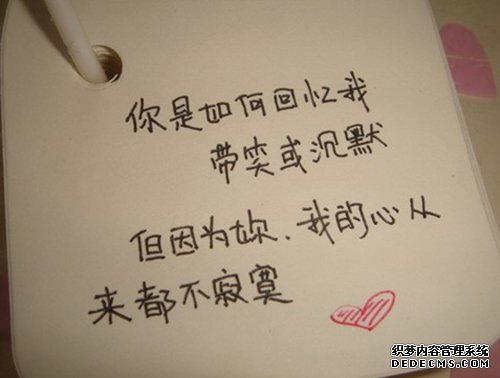 你是如何回忆我
带笑或沉默
但因为妳、我的心从
来都不寂寞
织梦内容管理系统
DEDECMS.COM